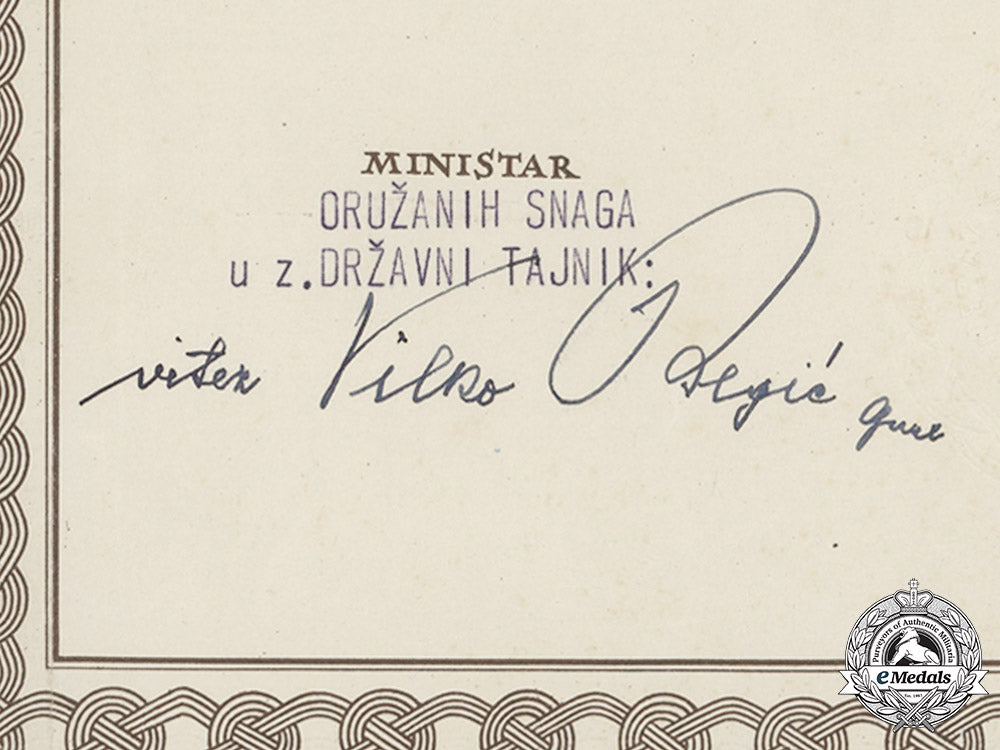 MINISTAR
ORUŽANIH SNAGA
u z. DRŽAVNI TAJNIK:
vitez Vilko
Purveyors of Authentic Militaria
eMedals